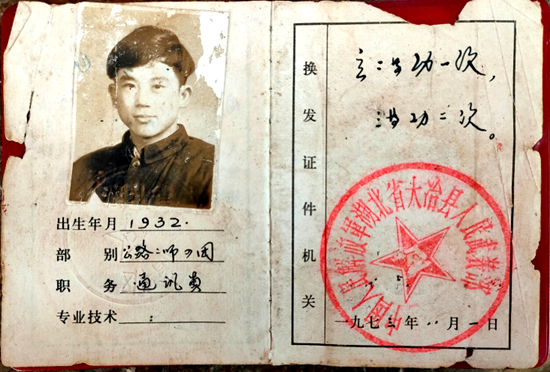 出生年月 1932.
部别 公路二师四团
职务 通讯员
专业技术 :
立二等功一次,
三等功二次。
换发证件机关
中国人民解放军湖北省大冶县人民武装部
一九七三年八月一日